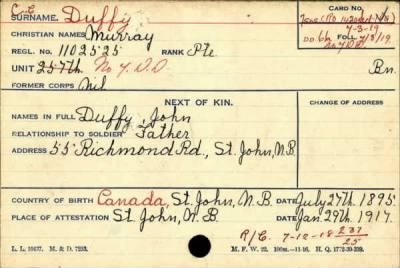 C.C.
SURNAME. Duffy CARD NO.
CHRISTIAN NAMES Murray
7-3-19
REGL. NO. 1102525 RANK Pte FOLL 7/3/19
No 7 D.D.
UNIT 257th No 7 D.D. Bn.
FORMER CORPS Nil
NEXT OF KIN. CHANGE OF ADDRESS
NAMES IN FULL Duffy, John
RELATIONSHIP TO SOLDIER Father
ADDRESS 55 Richmond Rd., St. John, N.B.
COUNTRY OF BIRTH Canada, St. John, N.B. DATE July 27th 1895
PLACE OF ATTESTATION St. John, N.B. DATE Jan. 29th 1917.
R/C. 7-12-18 237
25
L. L. 10437. M. & D. 7233. M. F. W. 22. 100m.-11-16. H. Q. 1772-39-339.